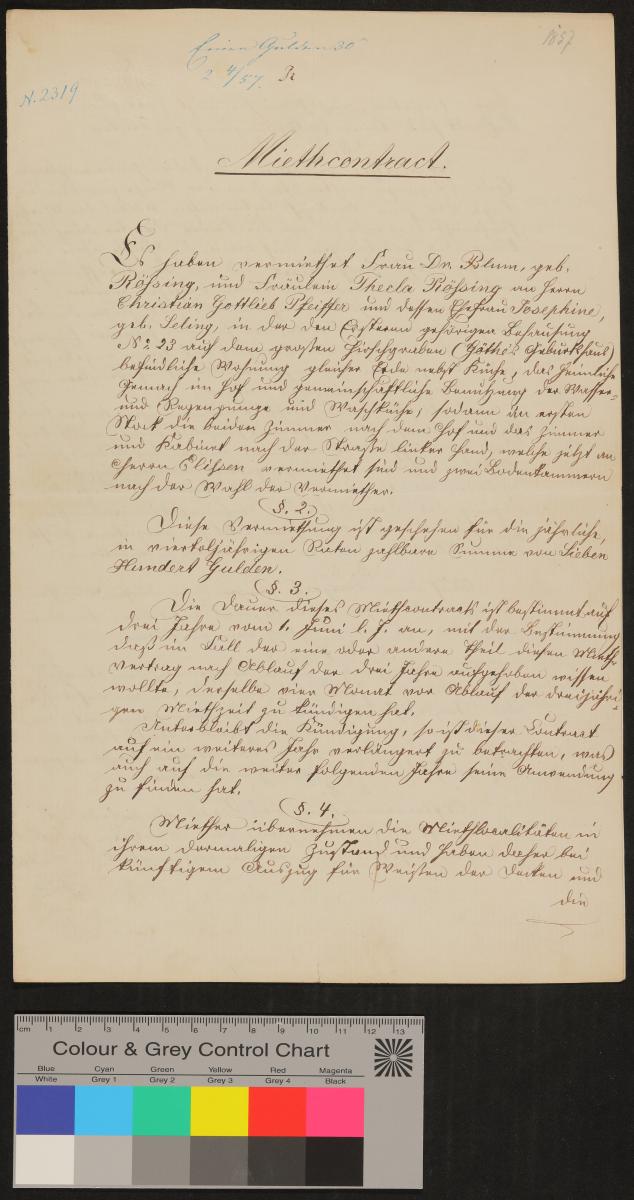 1857
Einen Gulden 30
2 4/57. Tr
N. 2319
Miethcontract.
Es haben vermiethet Frau Dr. Blum, geb.
Rössing, und Fräulein Thecla Rössing an Herrn
Christian Gottlieb Pfeiffer und dessen Ehefrau Josephine,
geb. Seling, in der den Ersteren gehörigen Behausung
No 23 auf dem großen Hirschgraben (Göthe's Geburtshaus)
befindliche Wohnung gleicher Erde nebst Küche, das heimliche
Gemach im Hof und gemeinschaftliche Benutzung der Wasser-
und Regenpumpe und Waschküche, sodann im ersten
Stock die beiden Zimmer nach dem Hof und das Zimmer
und Kabinet nach der Straße linker Hand, welche jetzt an
Herrn Elissen vermiethet sind und zwei Bodenkammern
nach der Wahl der Vermiether.
§. 2.
Diese Vermiethung ist geschehen für die jährliche,
in vierteljährigen Raten zahlbare Summe von Sieben
Hundert Gulden.
§. 3.
Die Dauer dieses Miethcontracts ist bestimmt auf
drei Jahre vom 1. Juni l. J. an, mit der Bestimmung
daß im Fall der eine oder andere Theil diesen Mieth-
vertrag nach Ablauf der drei Jahre aufgehoben wissen
wollte, derselbe vier Monat vor Ablauf der dreijähri-
gen Miethzeit zu kündigen hat.
Unterbleibt die Kündigung, so ist dieser Contract
auf ein weiteres Jahr verlängert zu betrachten, was
auch auf die weiter folgenden Jahre seine Anwendung
zu finden hat.
§. 4.
Miether übernehmen die Miethlocalitäten in
ihrem dermaligen Zustand und haben daher bei
künftigem Auszug für Weißen der Decken und
die
cm 1 2 3 4 5 6 7 8 9 10 11 12 13
Colour & Grey Control Chart
Blue Cyan Green Yellow Red Magenta
White Grey 1 Grey 2 Grey 3 Grey 4 Black